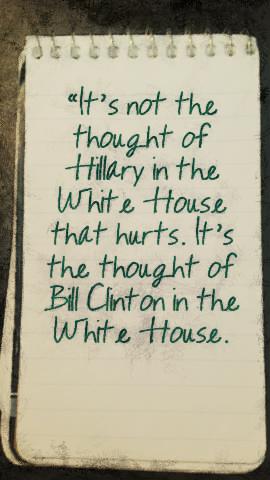 “It's not the
thought of
Hillary in the
White House
that hurts. It's
the thought of
Bill Clinton in the
White House.